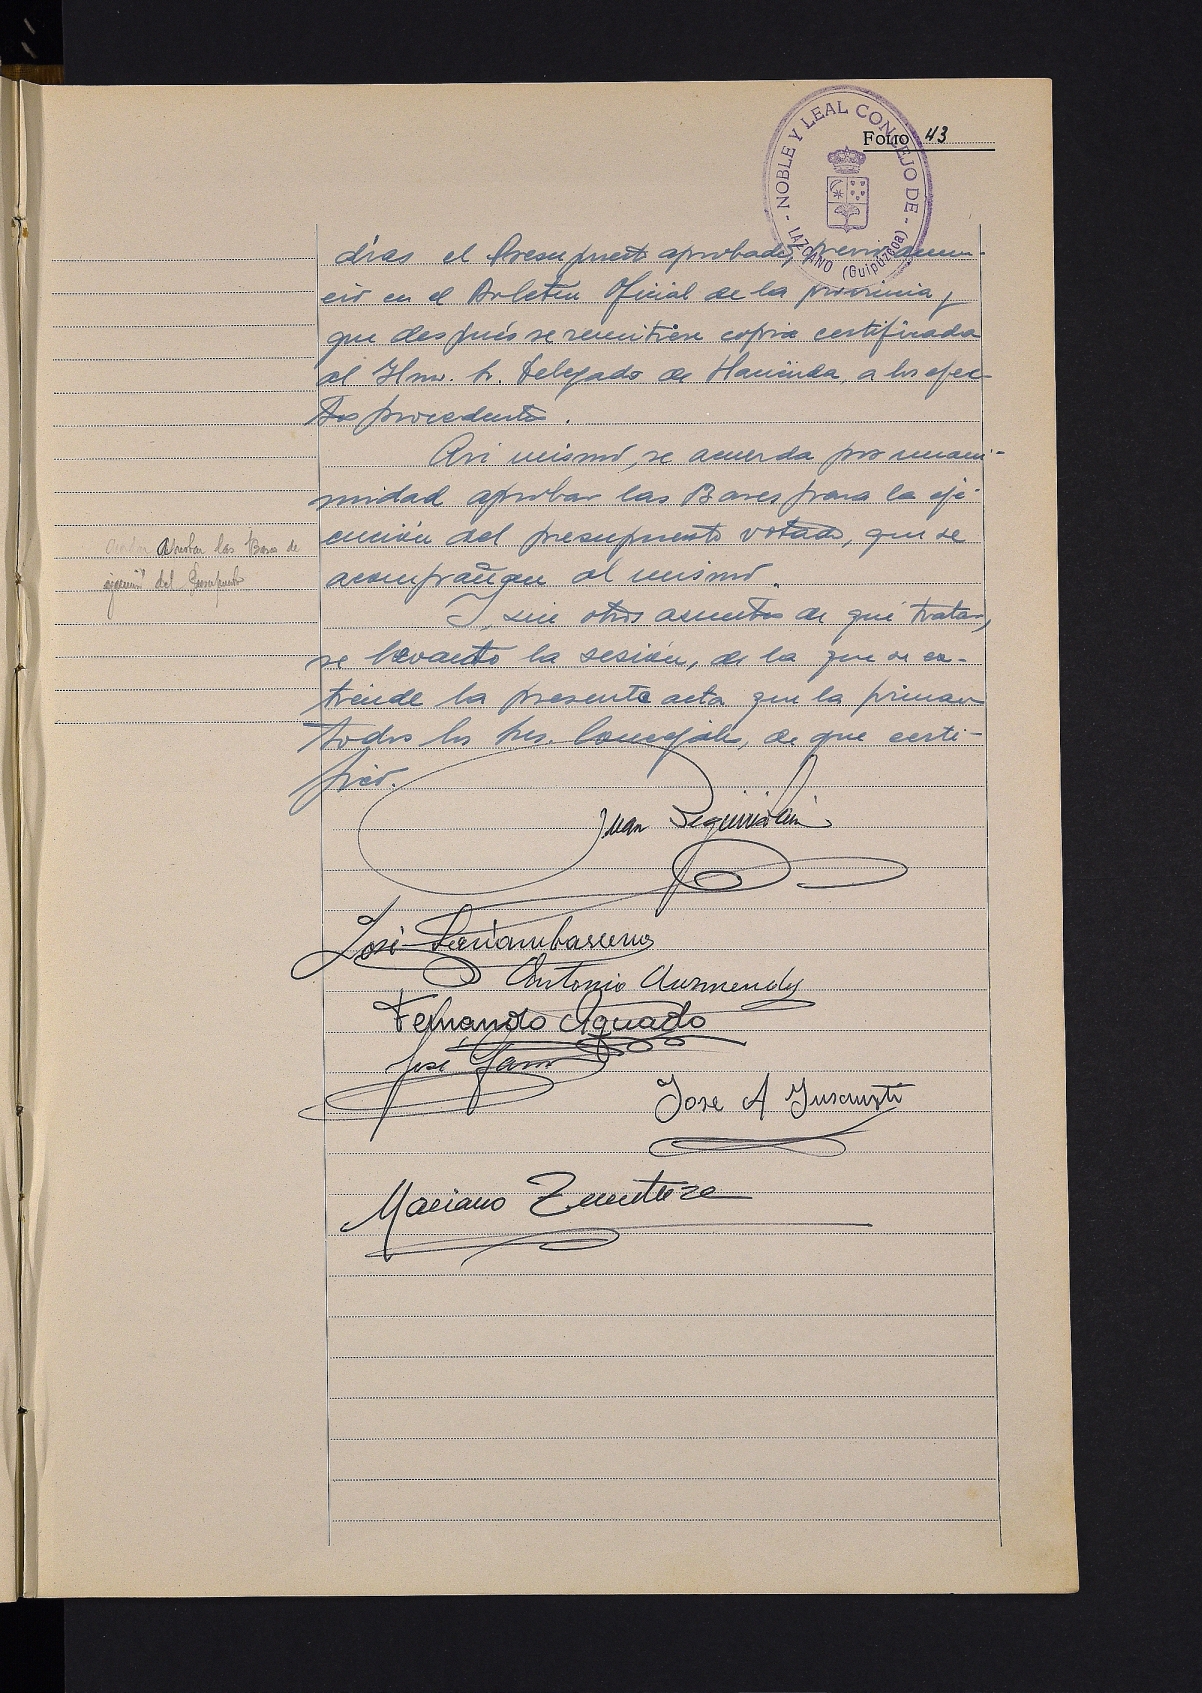 FOLIO 43
- NOBLE Y LEAL CONCEJO DE -
LAZCANO (Guipúzcoa)
días el Presupuesto aprobado, previo anun-
cio en el Boletín Oficial de la provincia, y
que después se remitiese copia certificada
al Ilmo. Sr. Delegado de Hacienda, a los efec-
tos procedentes.
Asi mismo, se acuerda por unani-
midad aprobar las Bases para la eje-
cución del presupuesto votado, que se
acompañan al mismo.
Aprobar las Bases de
ejecución del Presupuesto
Y, sin otros asuntos de qué tratar,
se levanto la sesión, de la que se ex-
tiende la presente acta que la firman
todos los Sres. Concejales, de que certi-
fico.
Juan
José
Antonio Ausmendy
Fernando Aguado
José
Jose A
Mariano